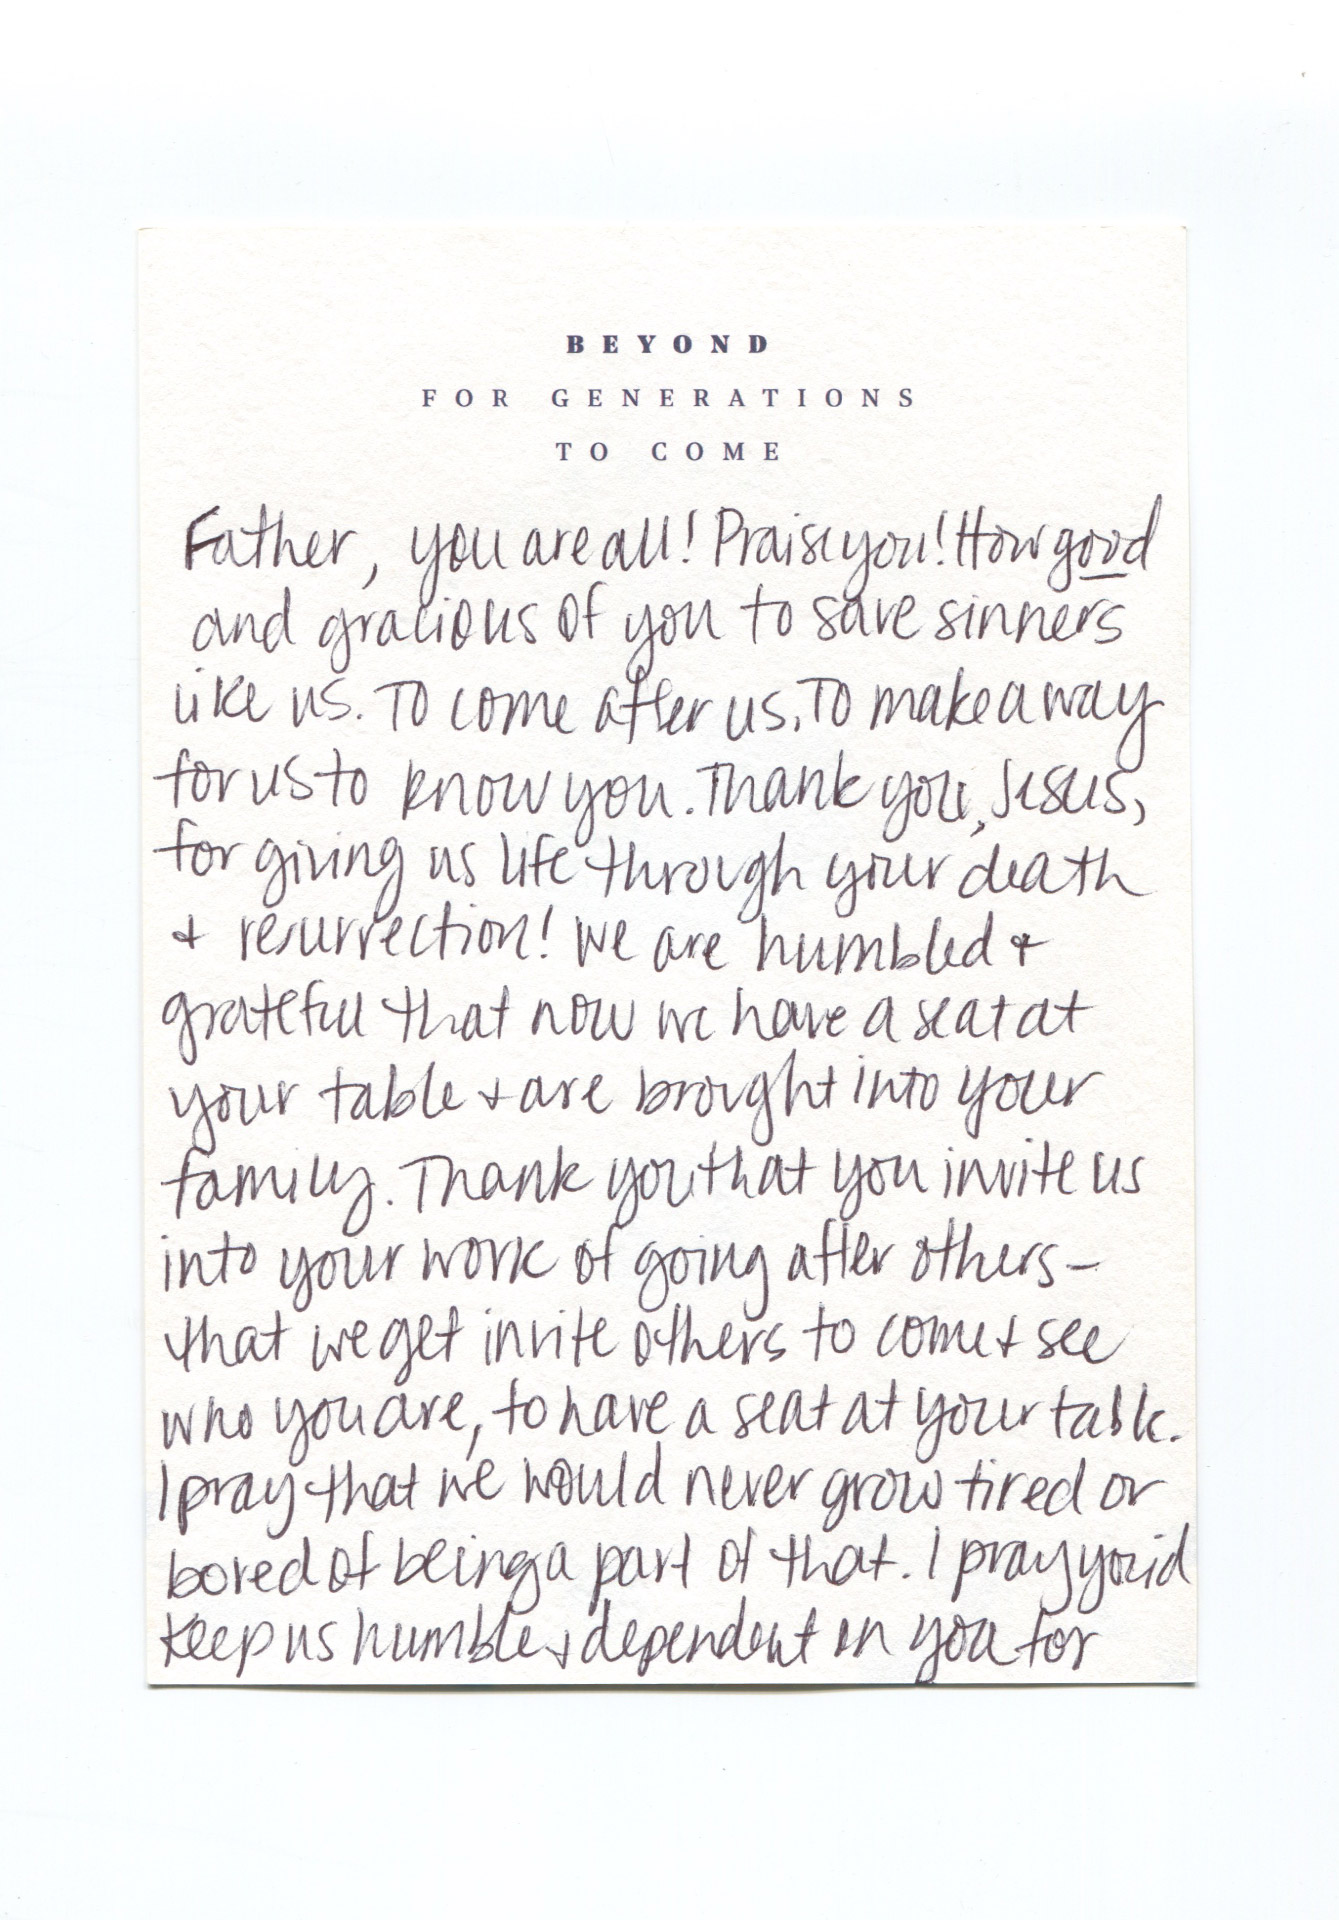 BEYOND
FOR GENERATIONS
TO COME
Father, you are all! Praise you! How good
and gracious of you to save sinners
like us. To come after us. To make a way
for us to know you. Thank you, Jesus,
for giving us life through your death
+ resurrection! We are humbled +
grateful that now we have a seat at
your table + are brought into your
family. Thank you that you invite us
into your work of going after others -
that we get invite others to come + see
who you are, to have a seat at your table.
I pray that we would never grow tired or
bored of being a part of that. I pray you'd
keep us humble + dependent on you for